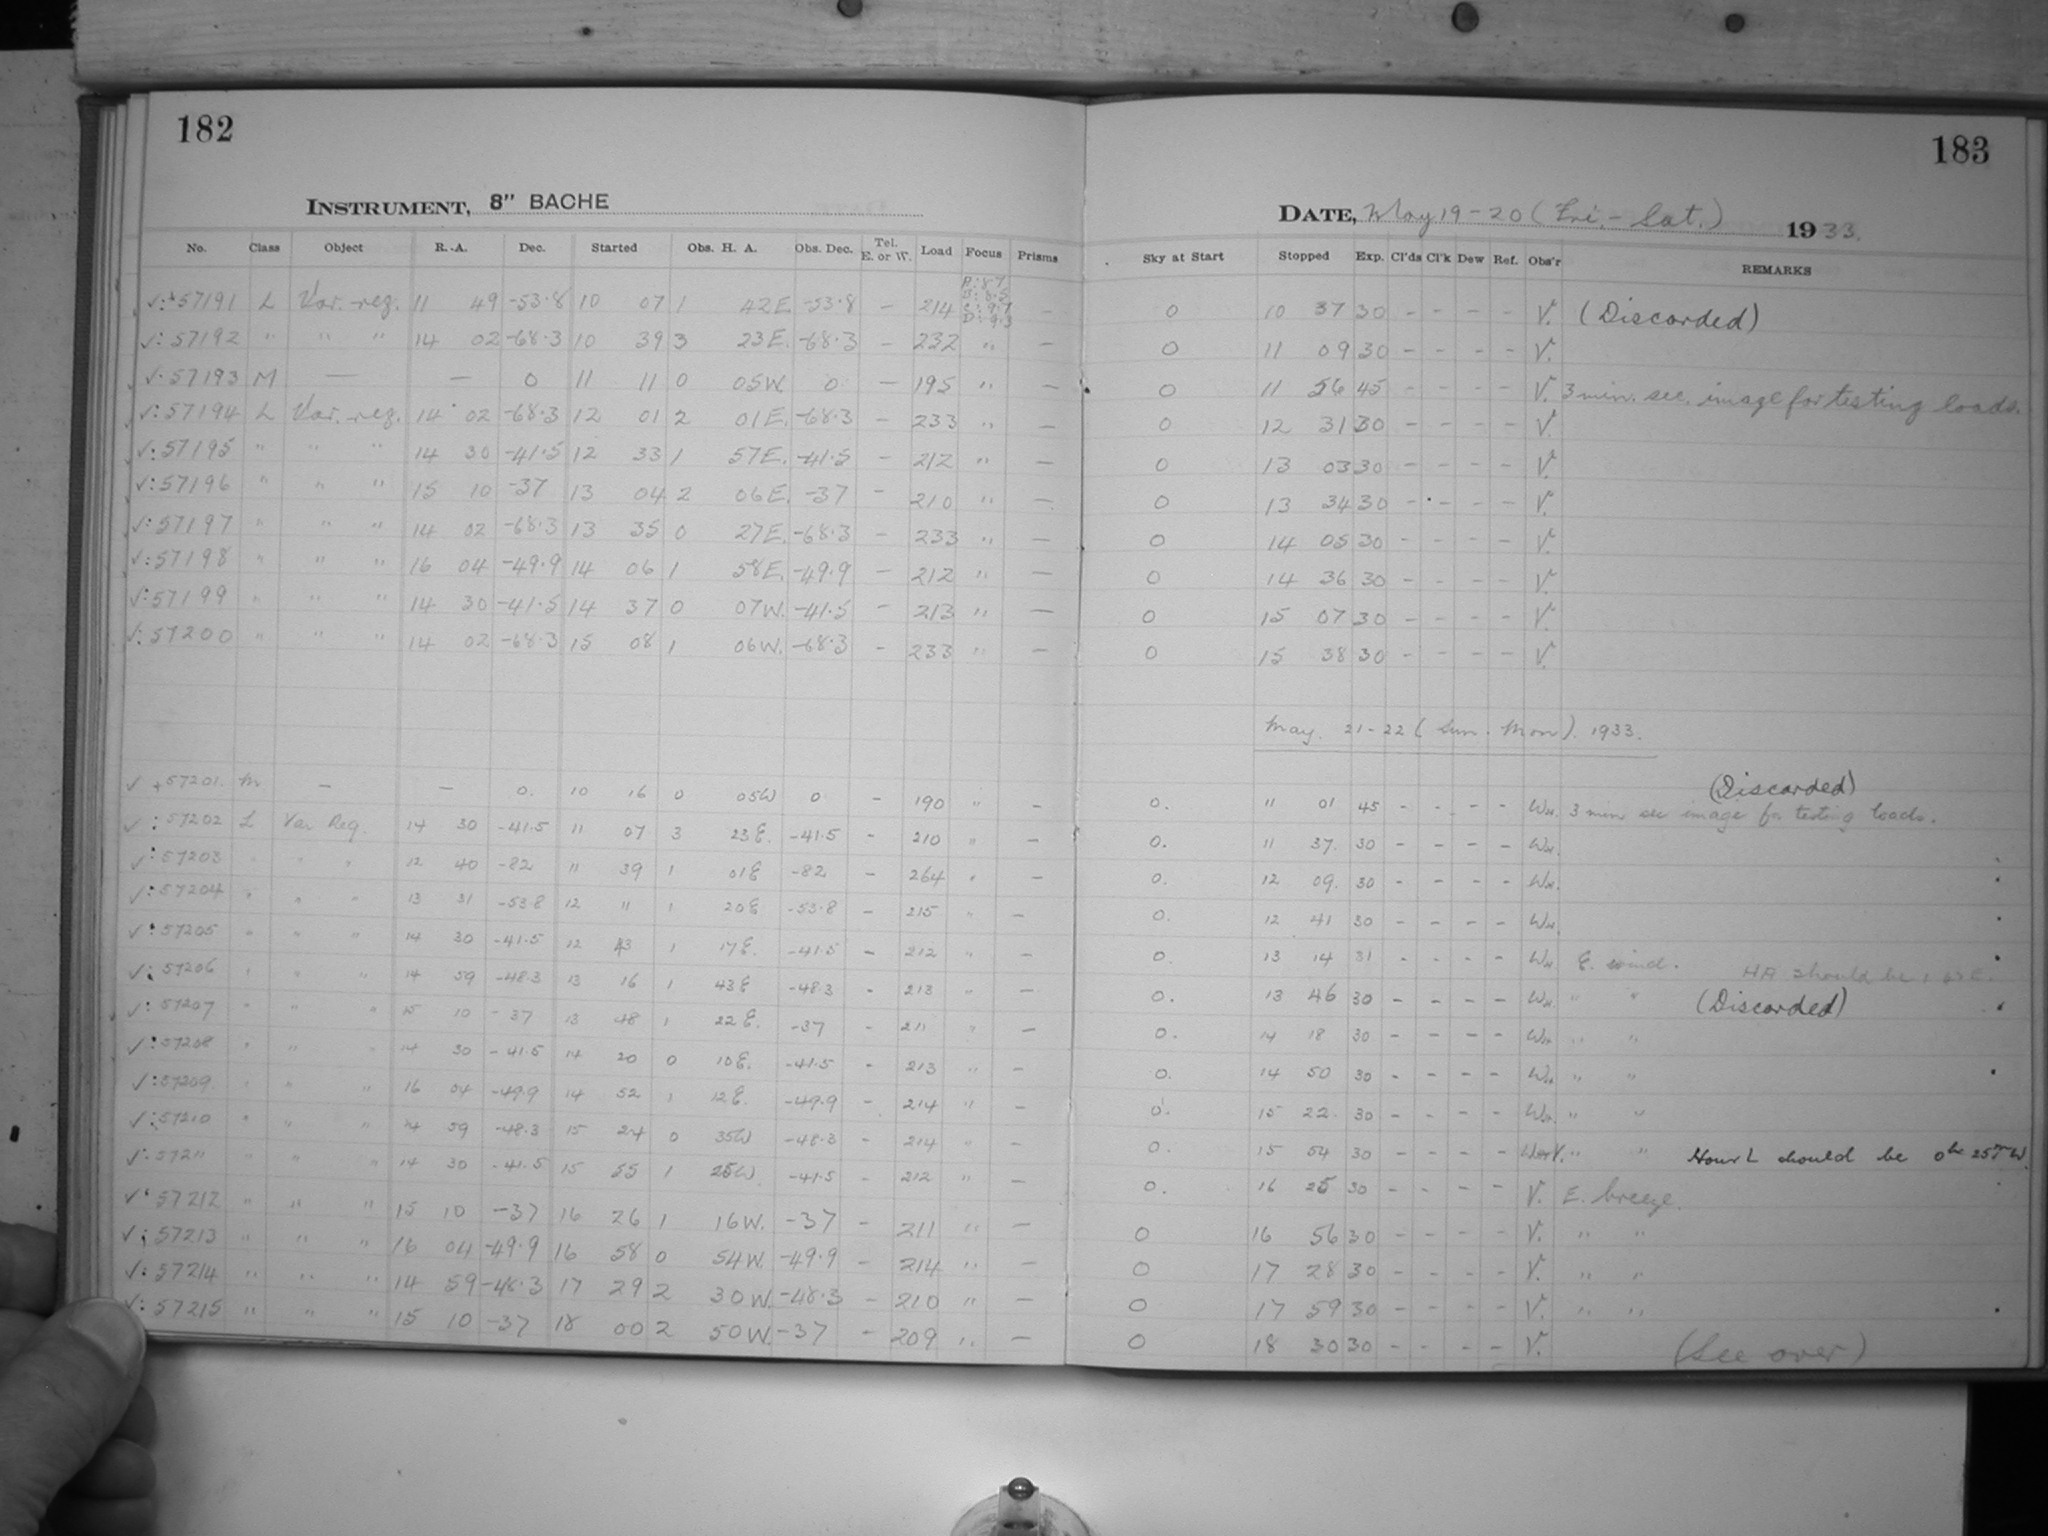 182
183
INSTRUMENT, 8" BACHE
DATE, May 19-20 (Fri. - Sat.) 1933.
No. Class Object R.A. Dec. Started Obs. H. A. Obs. Dec. Tel. E. or W. Load Focus Prisms Sky at Start Stopped Exp. Cl'ds Cl'k Dew Ref. Obs'r REMARKS
57191 L Var. reg. 11 49 -53.8 10 07 1 42E. -53.8 - 214 A: 8.7 B: 8.5 C: 9.7 D: 9.3 - 0 10 37 30 - - - - V. (Discarded)
57192 " " " 14 02 -68.3 10 39 3 23E. -68.3 - 232 " - 0 11 09 30 - - - - V.
57193 M — — 0 11 11 0 05W. 0 - 195 " - 0 11 56 45 - - - - V. 3 min. sec. image for testing loads.
57194 L Var. reg. 14 02 -68.3 12 01 2 01E. -68.3 - 233 " - 0 12 31 30 - - - - V.
57195 " " " 14 30 -41.5 12 33 1 57E. -41.5 - 212 " - 0 13 03 30 - - - - V.
57196 " " " 15 10 -37 13 04 2 06E. -37 - 210 " - 0 13 34 30 - - - - V.
57197 " " " 14 02 -68.3 13 35 0 27E. -68.3 - 233 " - 0 14 05 30 - - - - V.
57198 " " " 16 04 -49.9 14 06 1 58E. -49.9 - 212 " - 0 14 36 30 - - - - V.
57199 " " " 14 30 -41.5 14 37 0 07W. -41.5 - 213 " - 0 15 07 30 - - - - V.
57200 " " " 14 02 -68.3 15 08 1 06W. -68.3 - 233 " - 0 15 38 30 - - - - V.
May. 21-22 (Sun. Mon). 1933.
57201. M — — 0. 10 16 0 05W 0 - 190 " - 0. 11 01 45 - - - - WH. (Discarded) 3 min sec image for testing loads.
57202 L Var Reg. 14 30 -41.5 11 07 3 23E. -41.5 - 210 " - 0. 11 37. 30 - - - - WH.
57203 " " " 12 40 -82 11 39 1 01E -82 - 264 " - 0. 12 09. 30 - - - - WH.
57204 " " " 13 31 -53.8 12 11 1 20E -53.8 - 215 " - 0. 12 41 30 - - - - WH.
57205 " " " 14 30 -41.5 12 43 1 17E. -41.5 - 212 " - 0. 13 14 31 - - - - WH E. wind. HA should be
57206 " " " 14 59 -48.3 13 16 1 43E -48.3 - 213 " - 0. 13 46 30 - - - - WH. " " (Discarded)
57207 " " " 15 10 -37 13 48 1 22E. -37 - 211 " - 0. 14 18 30 - - - - WH " "
57208 " " " 14 30 -41.5 14 20 0 10E. -41.5 - 213 " - 0. 14 50 30 - - - - WH " "
57209. " " " 16 04 -49.9 14 52 1 12E. -49.9 - 214 " - 0. 15 22. 30 - - - - WH. " "
57210 " " " 14 59 -48.3 15 24 0 35W -48.3 - 214 " - 0. 15 54 30 - - - - V. " " Hour L should be 0h 25m W.
57211 " " " 14 30 -41.5 15 55 1 25W. -41.5 - 212 " - 0. 16 25 30 - - - - V. E. breeze.
57212 " " " 15 10 -37 16 26 1 16W. -37 - 211 " - 0 16 56 30 - - - - V. " "
57213 " " " 16 04 -49.9 16 58 0 54W. -49.9 - 214 " - 0 17 28 30 - - - - V. " "
57214 " " " 14 59 -48.3 17 29 2 30W. -48.3 - 210 " - 0 17 59 30 - - - - V. " "
57215 " " " 15 10 -37 18 00 2 50W. -37 - 209 " - 0 18 30 30 - - - - V.
(See over)